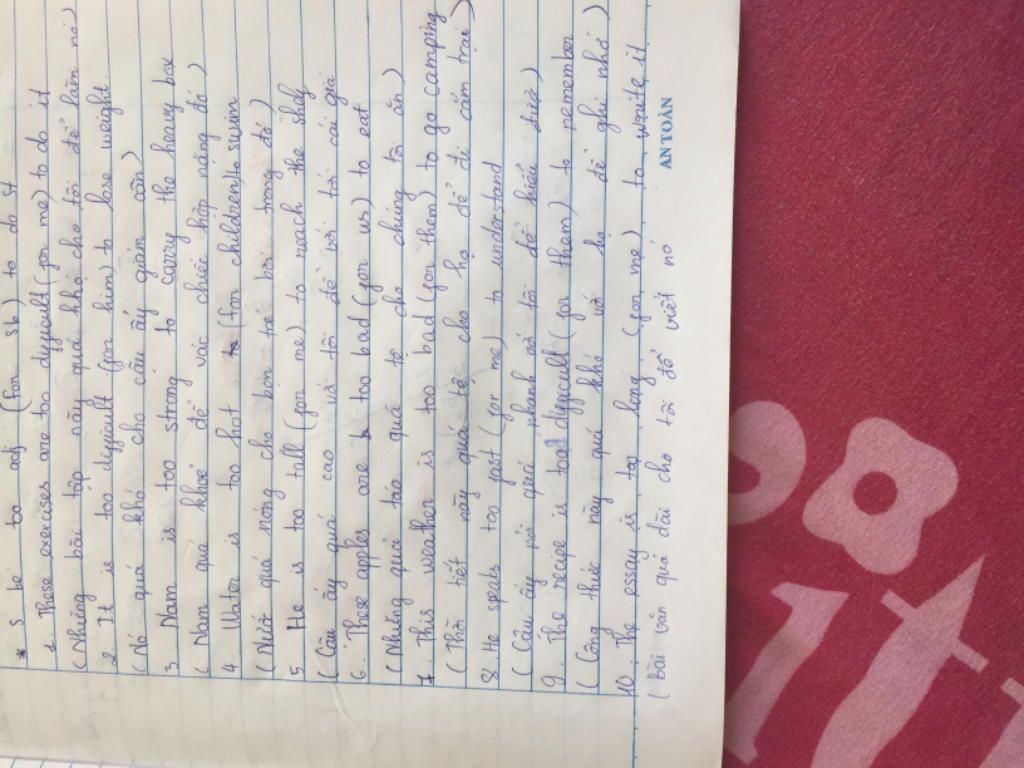 * S be too adj (for sb) to do st
1. These exercises are too difficult (for me) to do it
( Những bài tập này quá khó cho tôi để làm nó)
2 It is too difficult (for him) to lose weight.
( Nó quá khó cho cậu ấy giảm cân)
3 Nam is too strong to carry the heavy box
( Nam quá khoẻ để vác chiếc hộp nặng đó )
4 Water is too hot (for children) to swim
( Nước quá nóng cho bọn trẻ bơi trong đó )
5 He is too tall (for me) to reach the shelf
( Cậu ấy quá cao với tôi để với tới cái giá
6. These apples are too bad (for us) to eat
( Những quả táo quá tệ cho chúng tôi ăn)
7. This weather is too bad (for them) to go camping
( Thời tiết này quá tệ cho họ để đi cắm trại )
8 He speats too fast (for me) to understand
( Cậu ấy nói quá nhanh với tôi để hiểu được )
9. The recipe is too difficult (for them) to remember
( Công thức này quá khó với họ để ghi nhớ )
10. The essay is too long (for me) to write it
( bài văn quá dài cho tôi để viết nó
AN TOÀN
11
08